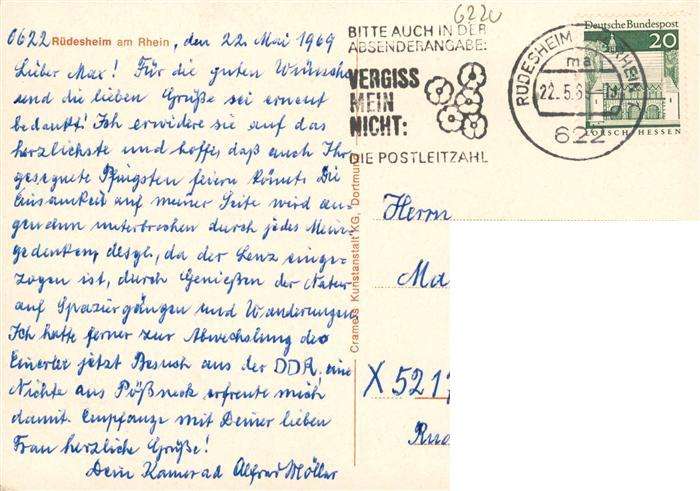 0622 Rüdesheim am Rhein, den 22. Mai 1969
Lieber Max! Für die guten Wünsche
und die lieben Grüße sei erneut
bedankt! Ich erwidere sie auf das
herzlichste und hoffe, daß auch Ihr
gesegnete Pfingsten feiern könnt. Die
Einsamkeit auf meiner Seite wird an-
genehm unterbrochen durch jedes
gedenken, desgl., da der Lenz einge-
zogen ist, durch Genießen der Natur
auf Spaziergängen und Wanderungen.
Ich hatte ferner zur Abwechslung des
Einerlei jetzt Besuch aus der DDR, eine
Nichte aus Pößneck erfreute mich
damit. Empfange mit Deiner lieben
Frau herzliche Grüße!
Dein Kamerad Alfred Möller
Cramers Kunstanstalt KG, Dortmund
6220
BITTE AUCH IN DER
ABSENDERANGABE:
VERGISS
MEIN
NICHT:
DIE POSTLEITZAHL
RÜDESHEIM
ma
22.5.6
622
Deutsche Bundespost
20
LORSCH/HESSEN
Herrn
Ma
X 521
Rud